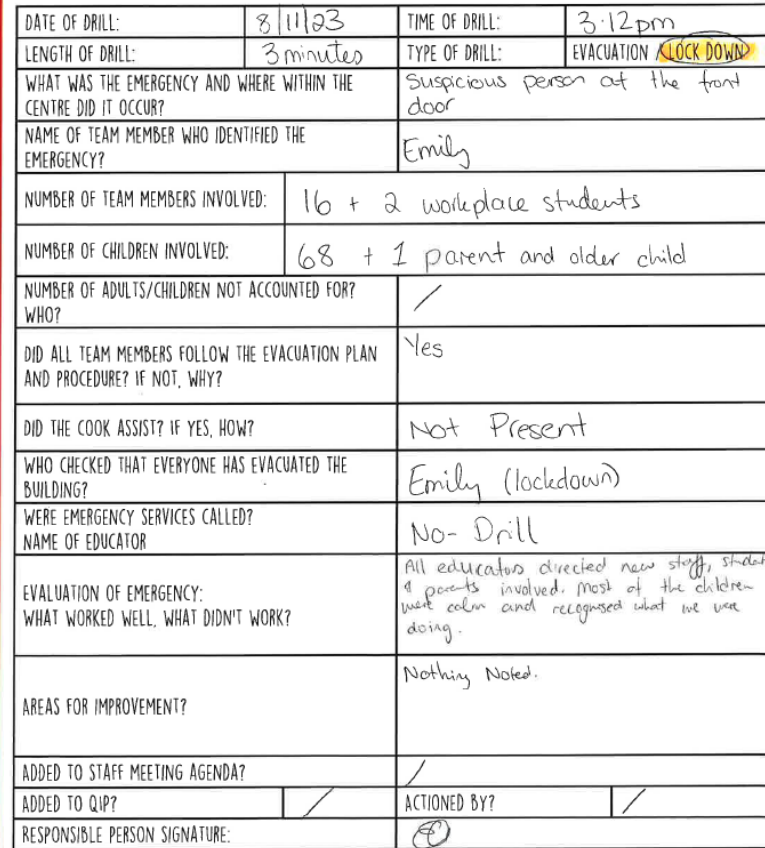 DATE OF DRILL: 8/11/23 TIME OF DRILL: 3.12pm
LENGTH OF DRILL: 3 minutes TYPE OF DRILL: EVACUATION / LOCK DOWN
WHAT WAS THE EMERGENCY AND WHERE WITHIN THE
CENTRE DID IT OCCUR?
Suspicious person at the front
door
NAME OF TEAM MEMBER WHO IDENTIFIED THE
EMERGENCY?
Emily
NUMBER OF TEAM MEMBERS INVOLVED: 16 + 2 workplace students
NUMBER OF CHILDREN INVOLVED: 68 + 1 parent and older child
NUMBER OF ADULTS/CHILDREN NOT ACCOUNTED FOR?
WHO?
/
DID ALL TEAM MEMBERS FOLLOW THE EVACUATION PLAN
AND PROCEDURE? IF NOT, WHY?
Yes
DID THE COOK ASSIST? IF YES, HOW? Not Present
WHO CHECKED THAT EVERYONE HAS EVACUATED THE
BUILDING?
Emily (lockdown)
WERE EMERGENCY SERVICES CALLED?
NAME OF EDUCATOR
No - Drill
EVALUATION OF EMERGENCY:
WHAT WORKED WELL, WHAT DIDN'T WORK?
All educators directed new staff, student
& parents involved. Most of the children
were calm and recognised what we were
doing.
AREAS FOR IMPROVEMENT?
Nothing Noted.
ADDED TO STAFF MEETING AGENDA? /
ADDED TO QIP? / ACTIONED BY? /
RESPONSIBLE PERSON SIGNATURE: